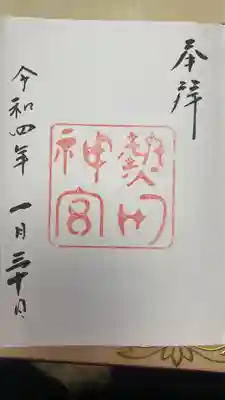 奉拝
熱田神宮
令和四年 一月三十日